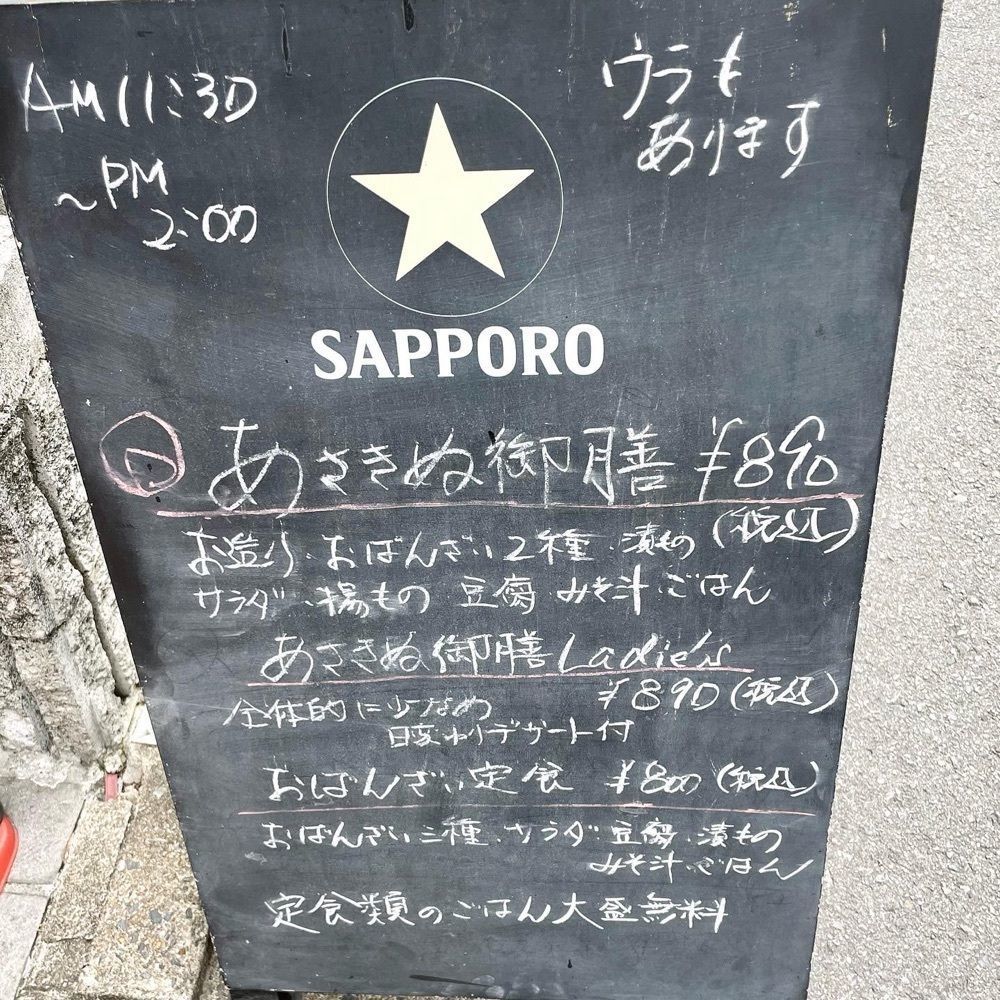 AM 11:30
～PM
2:00
ウラも
あります
SAPPORO
あさきぬ御膳 ¥890
(税込)
お造り・おばんざい2種・漬もの
サラダ・揚もの 豆腐 みそ汁・ごはん
あさきぬ御膳Ladie's
¥890(税込)
全体的に少なめ
日変わりデザート付
おばんざい定食 ¥800(税込)
おばんざい三種・サラダ 豆腐・漬もの
みそ汁・ごはん
定食類のごはん大盛無料